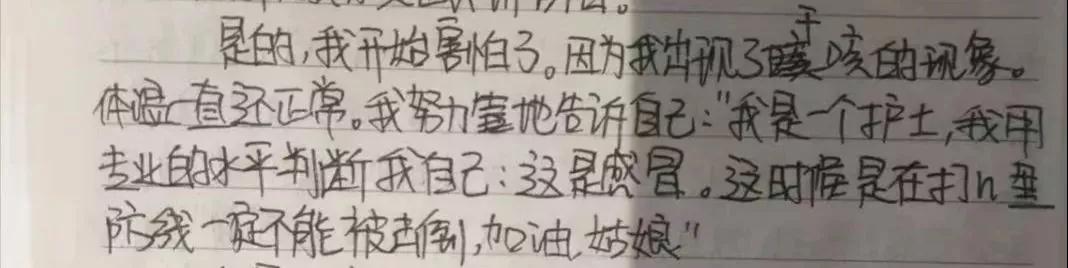 是的,我开始害怕了。因为我出现了干咳的现象。
体温一直还正常。我努力地告诉自己:"我是一个护士,我用
专业的水平判断我自己:这是感冒。这时候是在打
阶线一定不能被击倒,加油,姑娘"